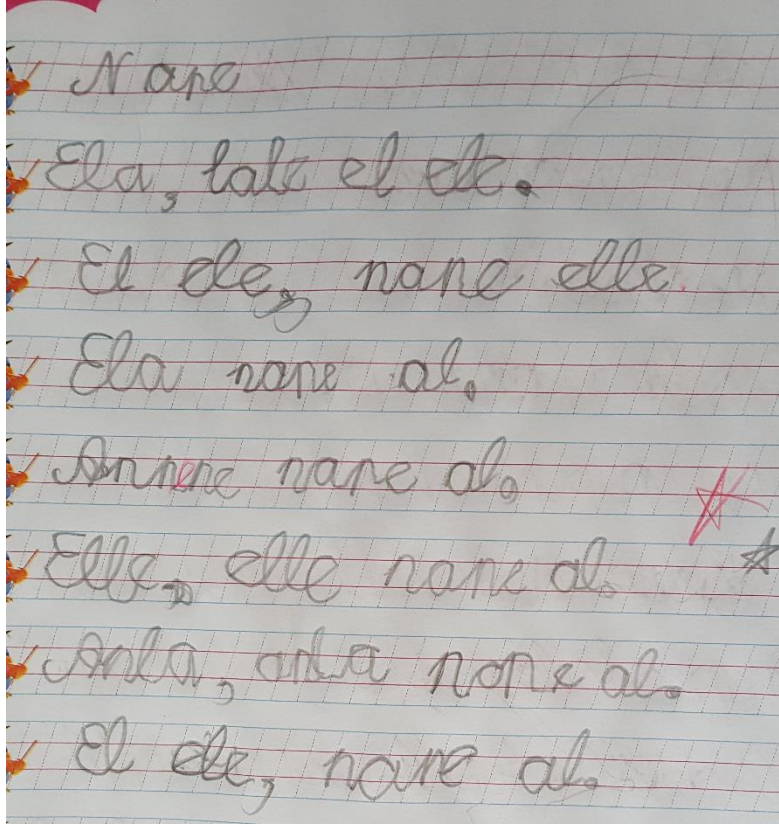 Nane
Ela, lale el ele.
El ele, nane elle.
Ela nane al.
Annene nane al.
Elle, elle nane al.
Anla, anla nane al.
El ele, nane al.